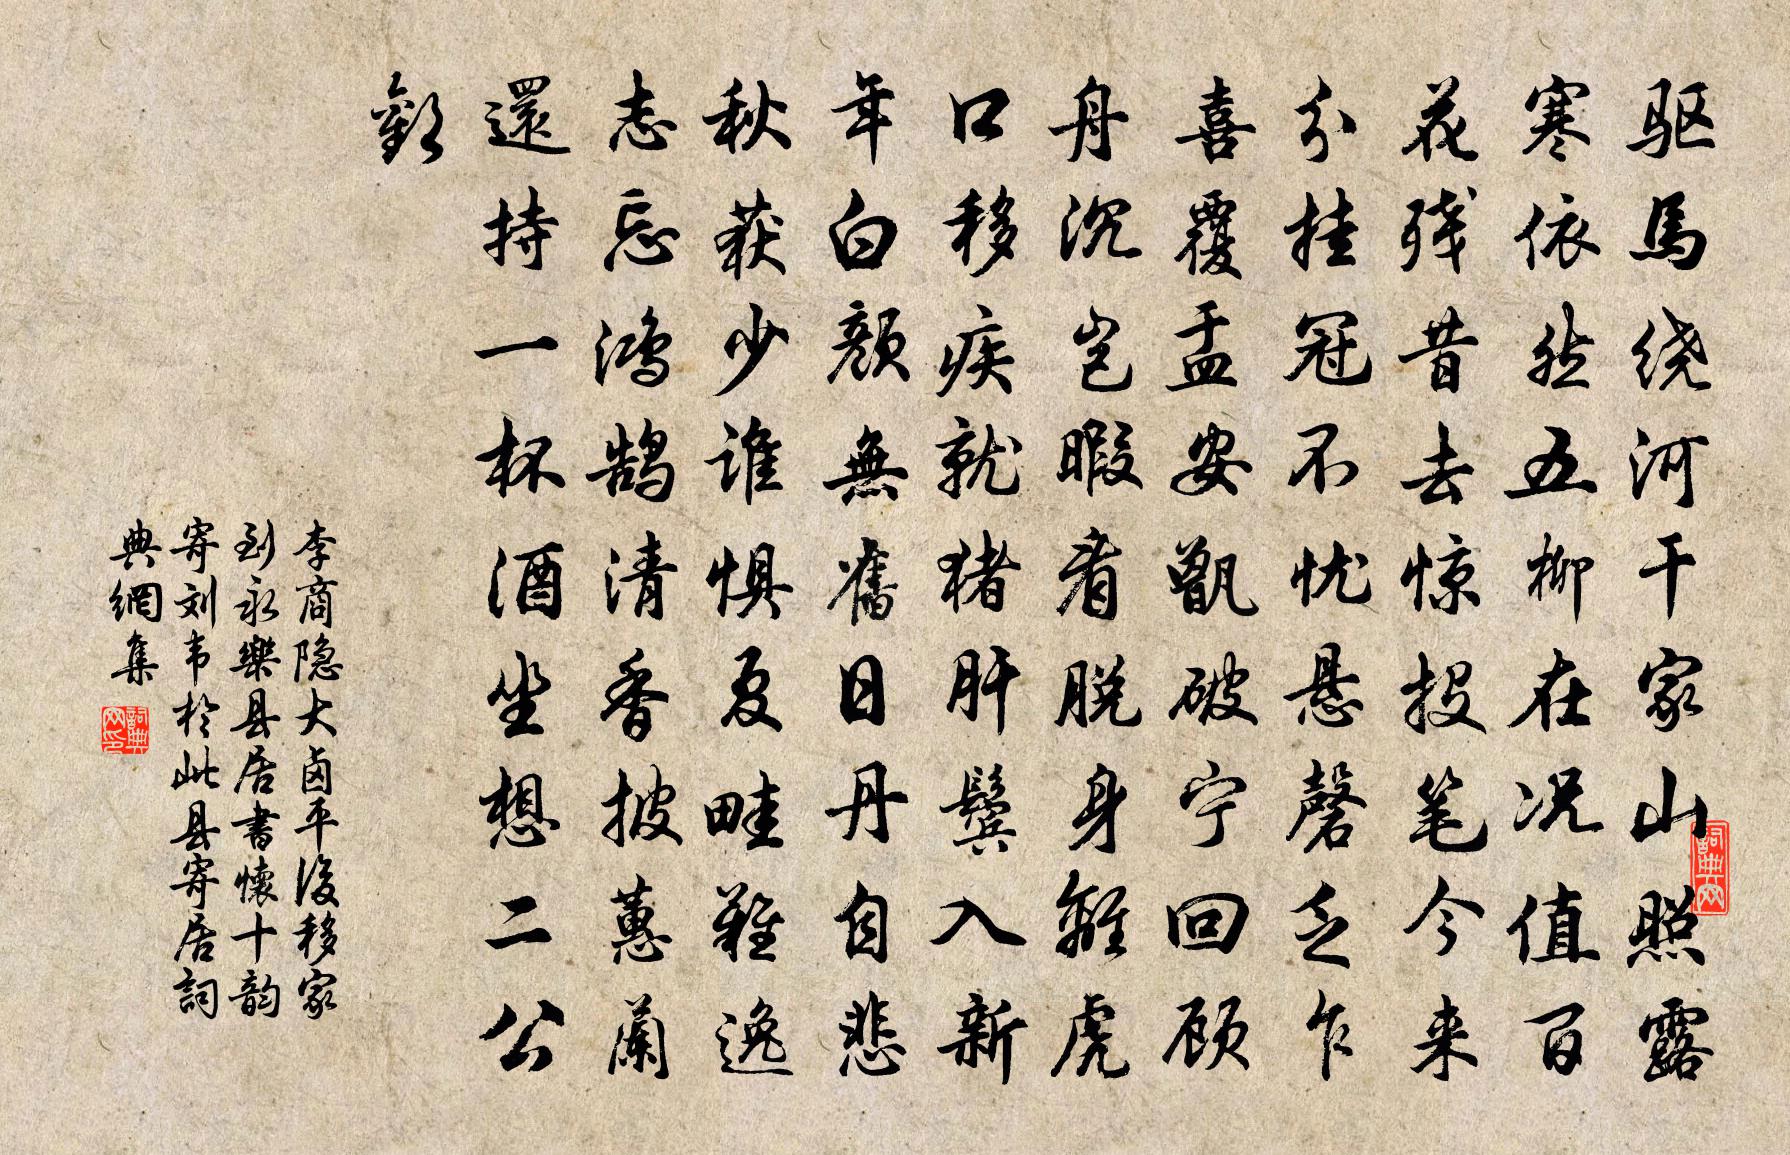 驱馬绕河干家山照露
寒依然五柳在况值百
花残昔去惊投笔今来
分挂冠不忧悬磬乏乍
喜覆盂安甑破宁回顾
舟沉岂暇看脱身離虎
口移疾就猪肝鬓入新
年白颜無舊日丹自悲
秋获少谁惧夏畦難逸
志忘鸿鹄清香披蕙蘭
還持一杯酒坐想二公
歡
李商隐大卤平後移家
到永樂县居書懷十韵
寄刘韦於此县寄居詞
典網集
詞典网
詞典网印